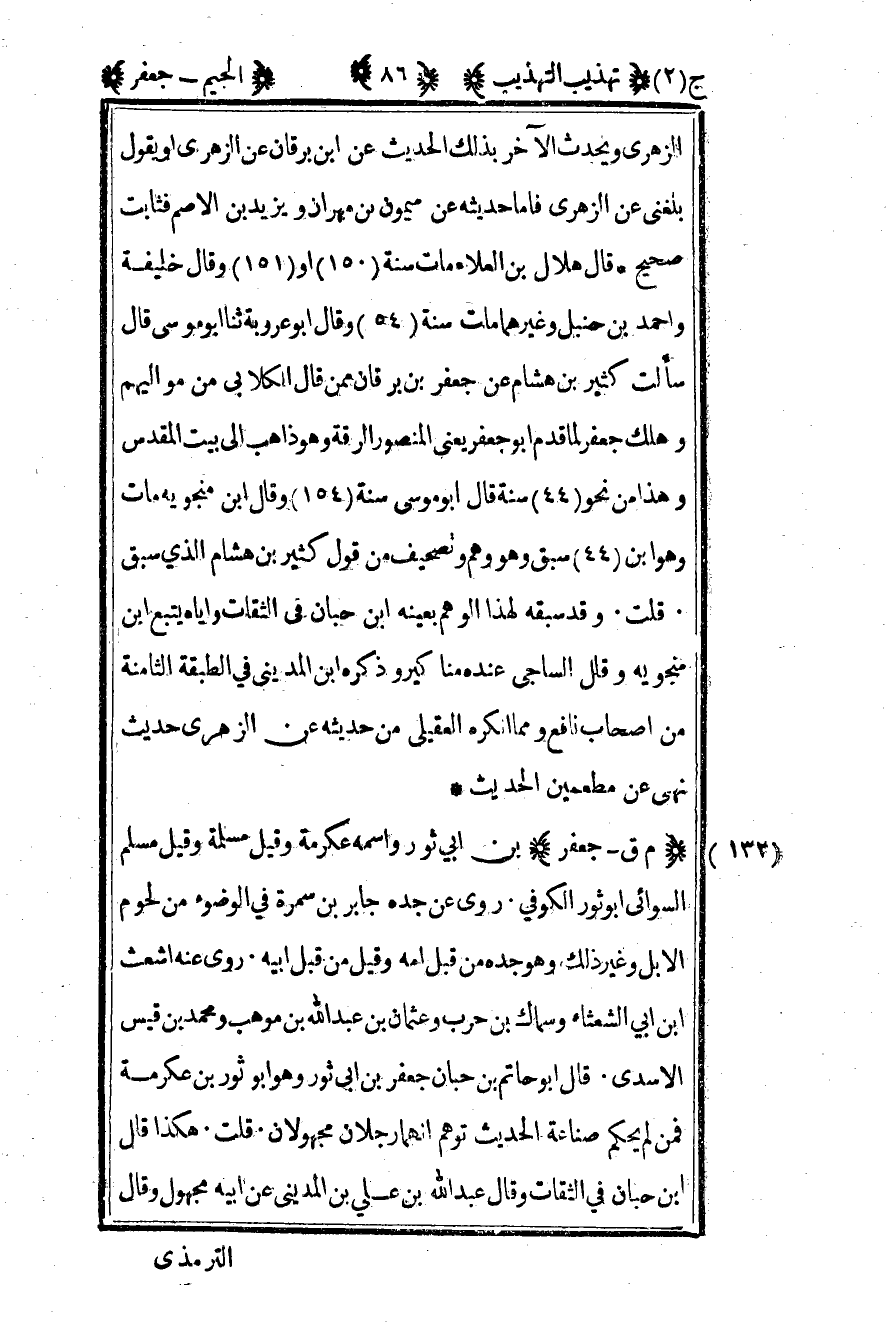 ج (٢) ﴿ تهذيب التهذيب ﴾ ﴿ ٨٦ ﴾ ﴿ الجيم - جعفر ﴾
الزهرى ويحدث الآخر بذلك الحديث عن ابن برقان عن الزهرى او يقول
بلغنى عن الزهرى فاما حديثه عن ميمون بن مهران و يزيد بن الاصم فثابت
صحيح * قال هلال بن العلاء مات سنة (١٥٠) او (١٥١) وقال خليفة
واحمد بن حنبل وغيرهما مات سنة (٥٤) وقال ابو عروبة ثنا ابو موسى قال
سألت كثير بن هشام عن جعفر بن برقان ممن قال الكلابى من مواليهم
و هلك جعفر لما قدم ابو جعفر يعنى المنصور الرقة وهو ذاهب الى بيت المقدس
و هذا من نحو (٤٤) سنة قال ابو موسى سنة (١٥٤) وقال ابن منجويه مات
وهو ابن (٤٤) سبق وهو وهم وتصحيف من قول كثير بن هشام الذي سبق
٠ قلت ٠ و قد سبقه لهذا الوهم بعينه ابن حبان فى الثقات واياه يتبع ابن
منجويه و قال الساجى عنده مناكير و ذكره ابن المدينى في الطبقة الثامنة
من اصحاب نافع و مما انكره العقيلى من حديثه عن الزهرى حديث
نهى عن مطعمين الحديث *
(١٣٢) ﴿ م ق - جعفر ﴾ بن ابي ثور واسمه عكرمة وقيل مسلمة وقيل مسلم
السوائى ابو ثور الكوفي ٠ روى عن جده جابر بن سمرة في الوضوء من لحوم
الابل وغير ذلك وهو جده من قبل امه وقيل من قبل ابيه ٠ روى عنه اشعث
ابن ابي الشعثاء وسماك بن حرب وعثمان بن عبدالله بن موهب و محمد بن قيس
الاسدى ٠ قال ابو حاتم بن حبان جعفر بن ابى ثور وهو ابو ثور بن عكرمة
فمن لم يحكم صناعة الحديث توهم انهما رجلان مجهولان ٠ قلت ٠ هكذا قال
ابن حبان في الثقات وقال عبدالله بن علي بن المدينى عن ابيه مجهول وقال
الترمذى